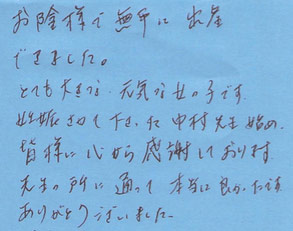 お陰様で無事に出産
できました。
とても大きな元気な女の子です
妊娠させて下さった中村先生始め、
皆様に心から感謝しております
先生の所に通って本当に良かったです
ありがとうございました。